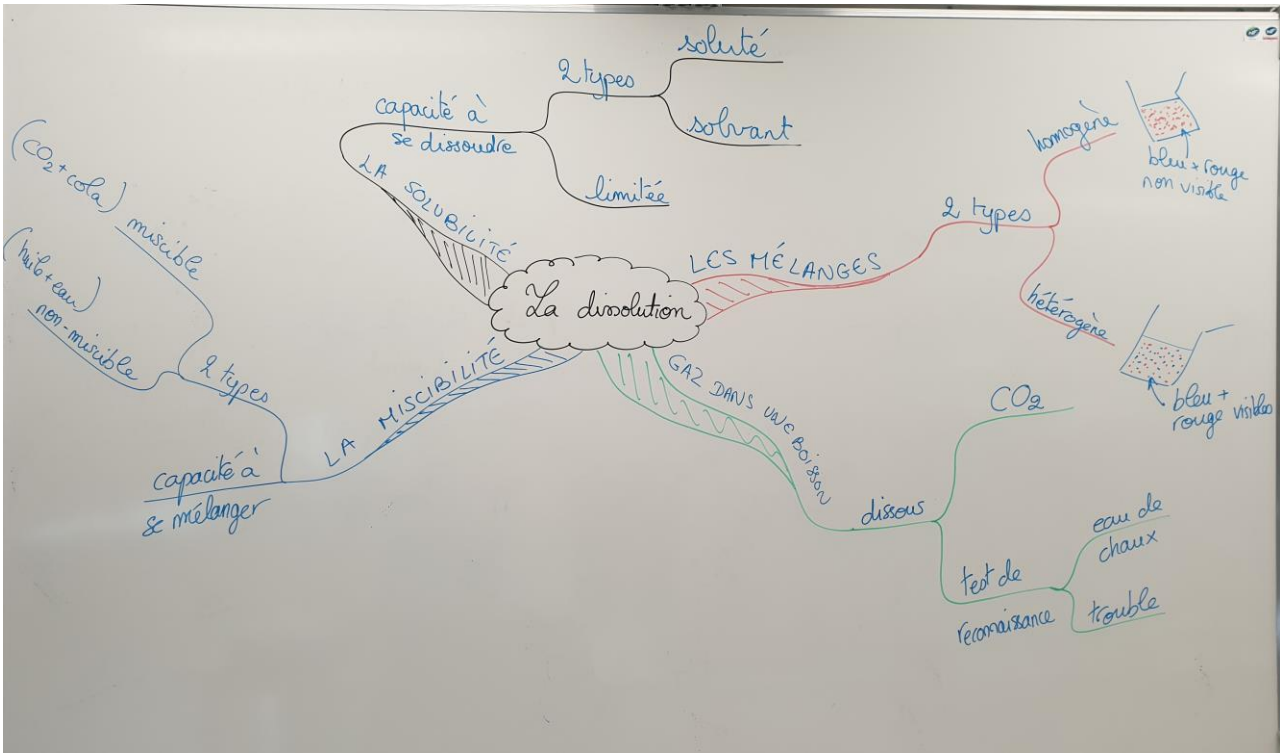 La dissolution
LA SOLUBILITÉ
capacité à
se dissoudre
2 types
soluté
solvant
limitée
LES MÉLANGES
2 types
homogène
bleu + rouge
non visible
hétérogène
bleu +
rouge visibles
GAZ DANS UNE BOISSON
dissous
CO2
test de
reconnaissance
eau de
chaux
trouble
LA MISCIBILITÉ
2 types
miscible
(CO2 + cola)
non-miscible
(huile + eau)
capacité à
se mélanger